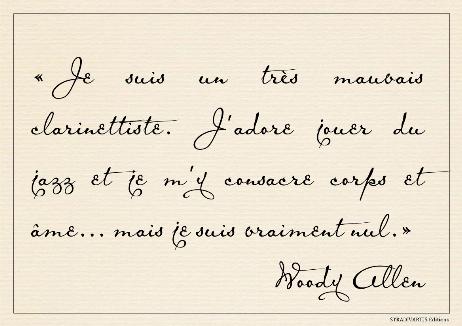 « Je suis un très mauvais
clarinettiste. J'adore jouer du
jazz et je m'y consacre corps et
âme... mais je suis vraiment nul.»
Woody Allen
STRADIVARIUS Editions